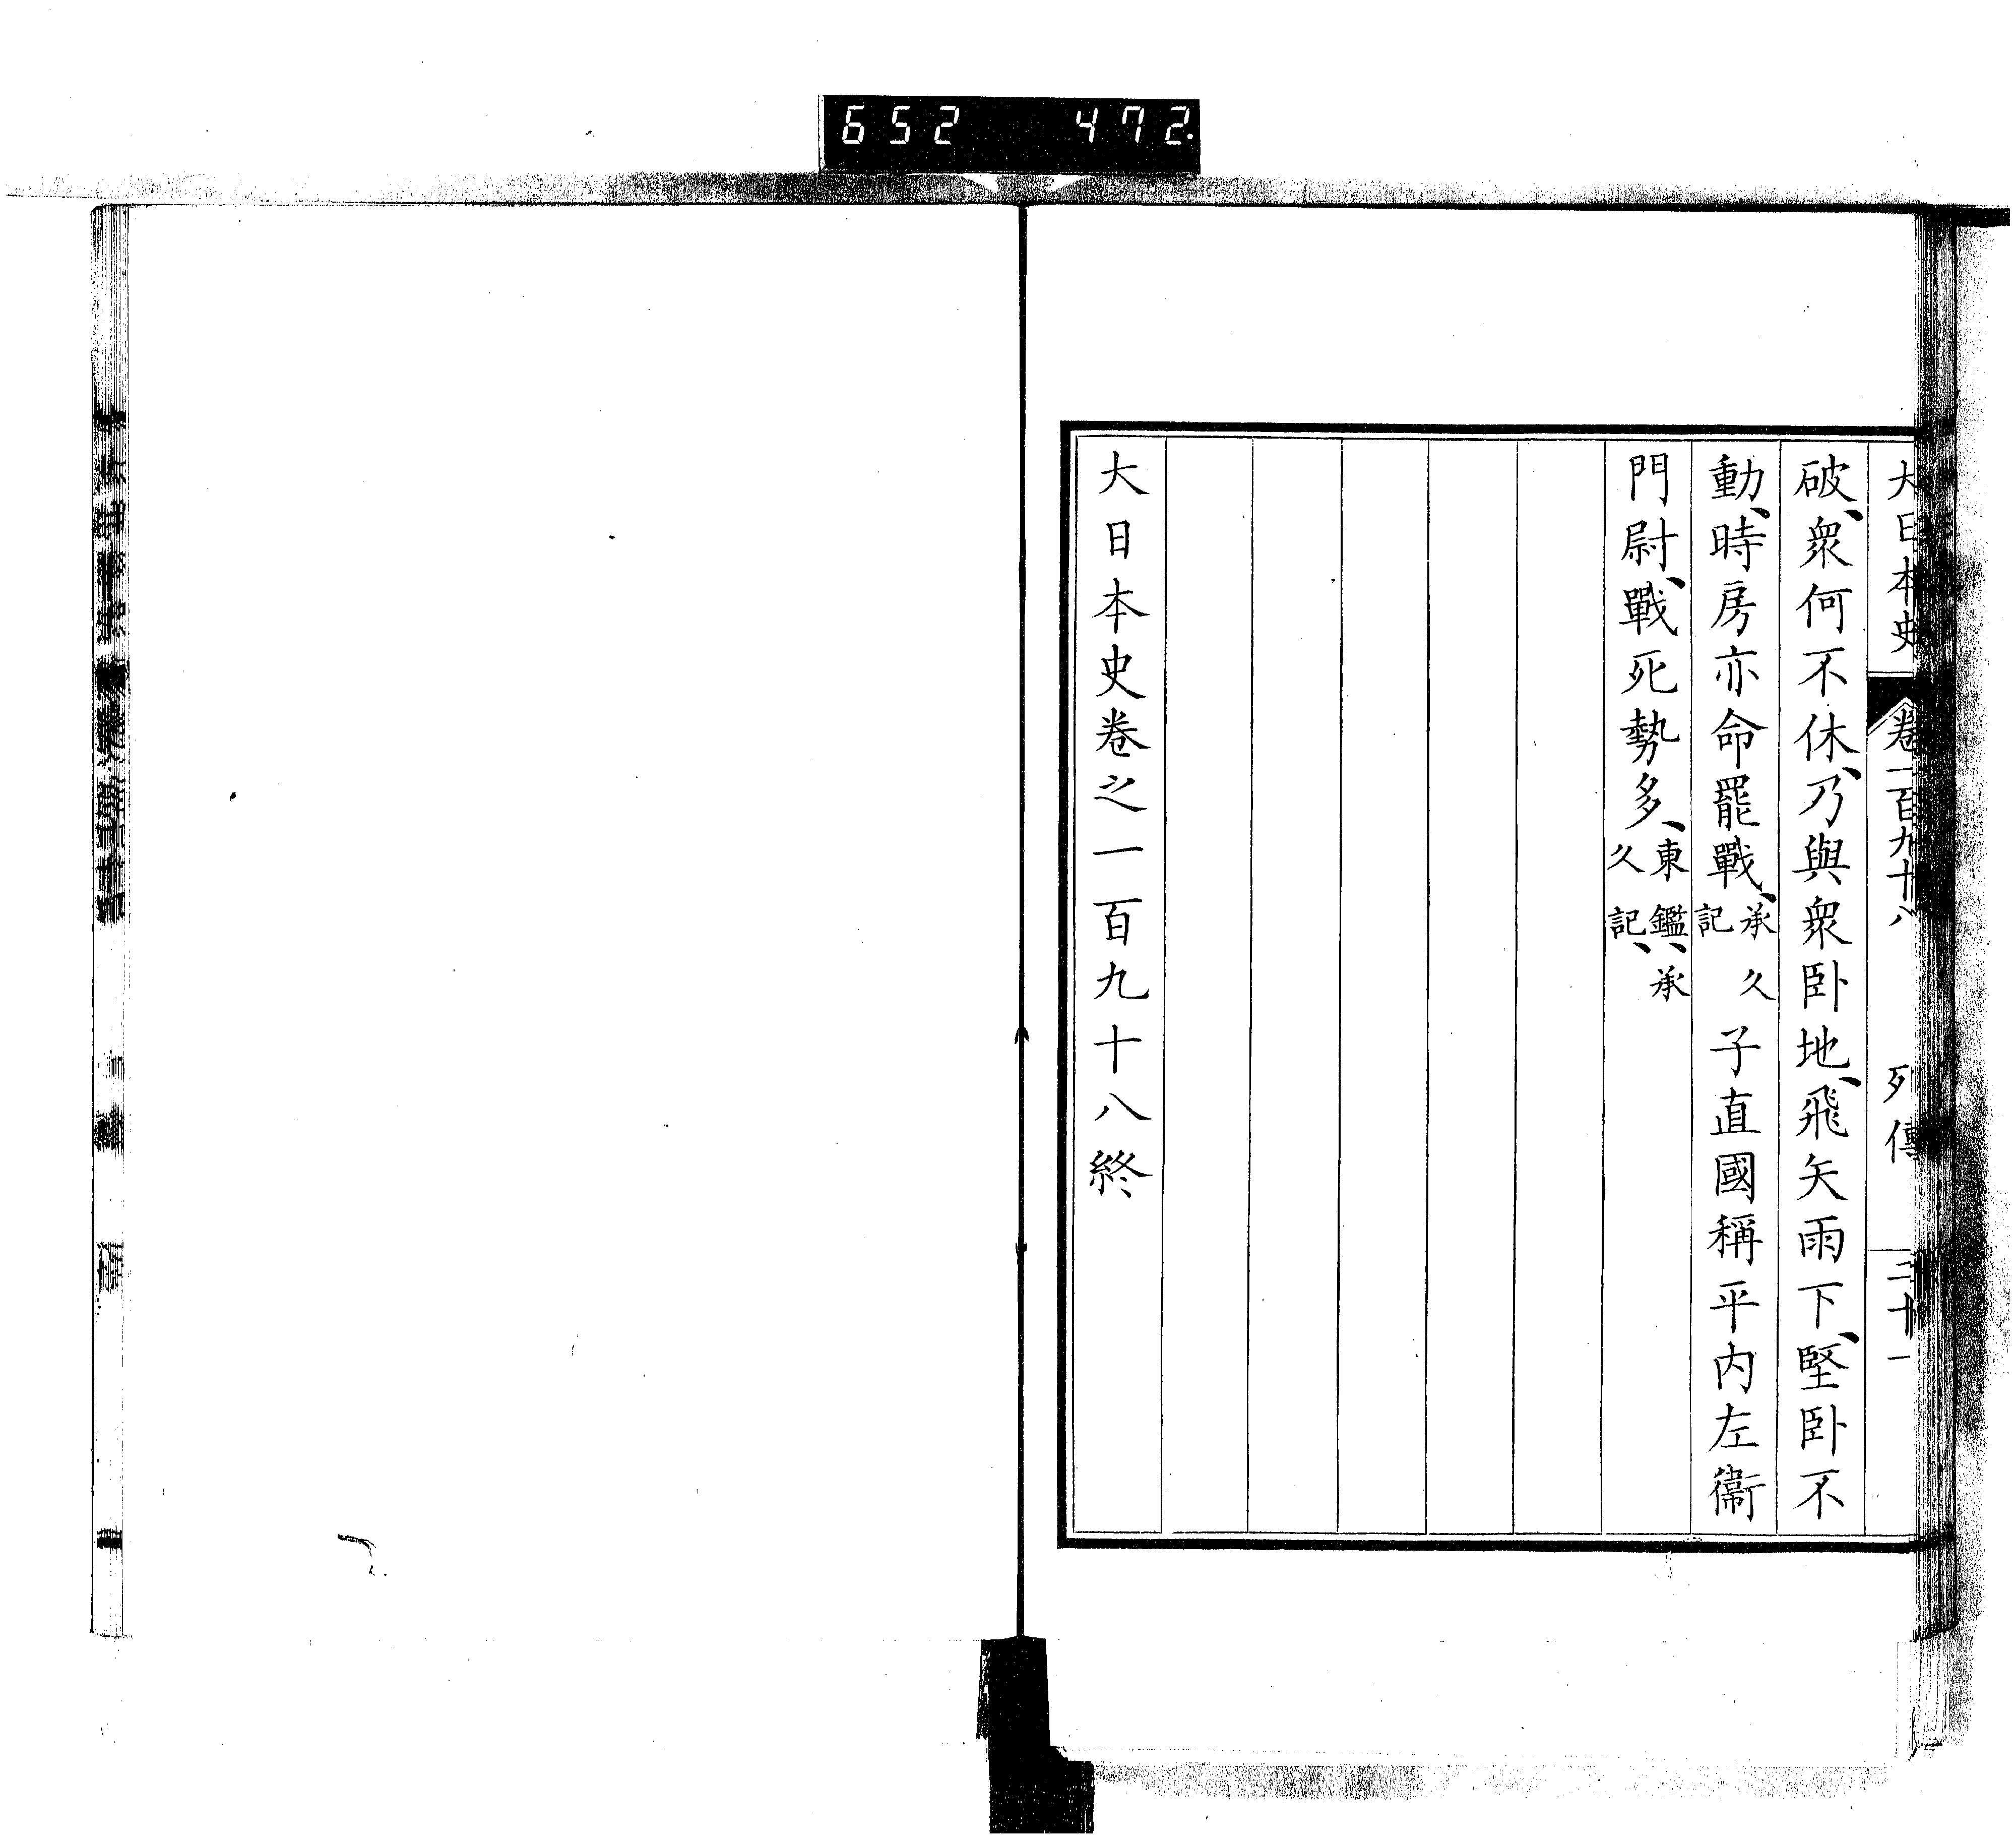 652 472.
大日本史 卷一百九十八 列傳 三十一
破、衆何不休、乃與衆臥地、飛矢雨下、堅臥不
動、時房亦命罷戰、承久記 子直國稱平内左衞
門尉、戰死勢多、東鑑、承久記、
大日本史卷之一百九十八終